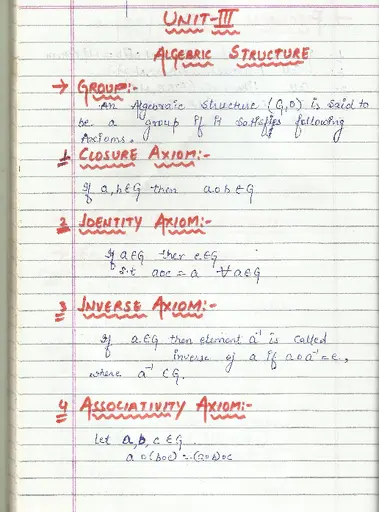 UNIT-III
ALGEBRIC STRUCTURE
→ GROUP:-
An Algebraic structure (G,o) is said to
be a group if it satisfies following
Axioms.
1 CLOSURE AXIOM:-
If a,b∈G then aob∈G
2 IDENTITY AXIOM:-
If a∈G then e∈G
s.t aoe = a ∀a∈G
3 INVERSE AXIOM:-
If a∈G then element a⁻¹ is called
inverse of a if aoa⁻¹=e,
where a⁻¹ ∈G.
4 ASSOCIATIVITY AXIOM:-
let a,b,c ∈G.
a o(boc) = (aob)oc